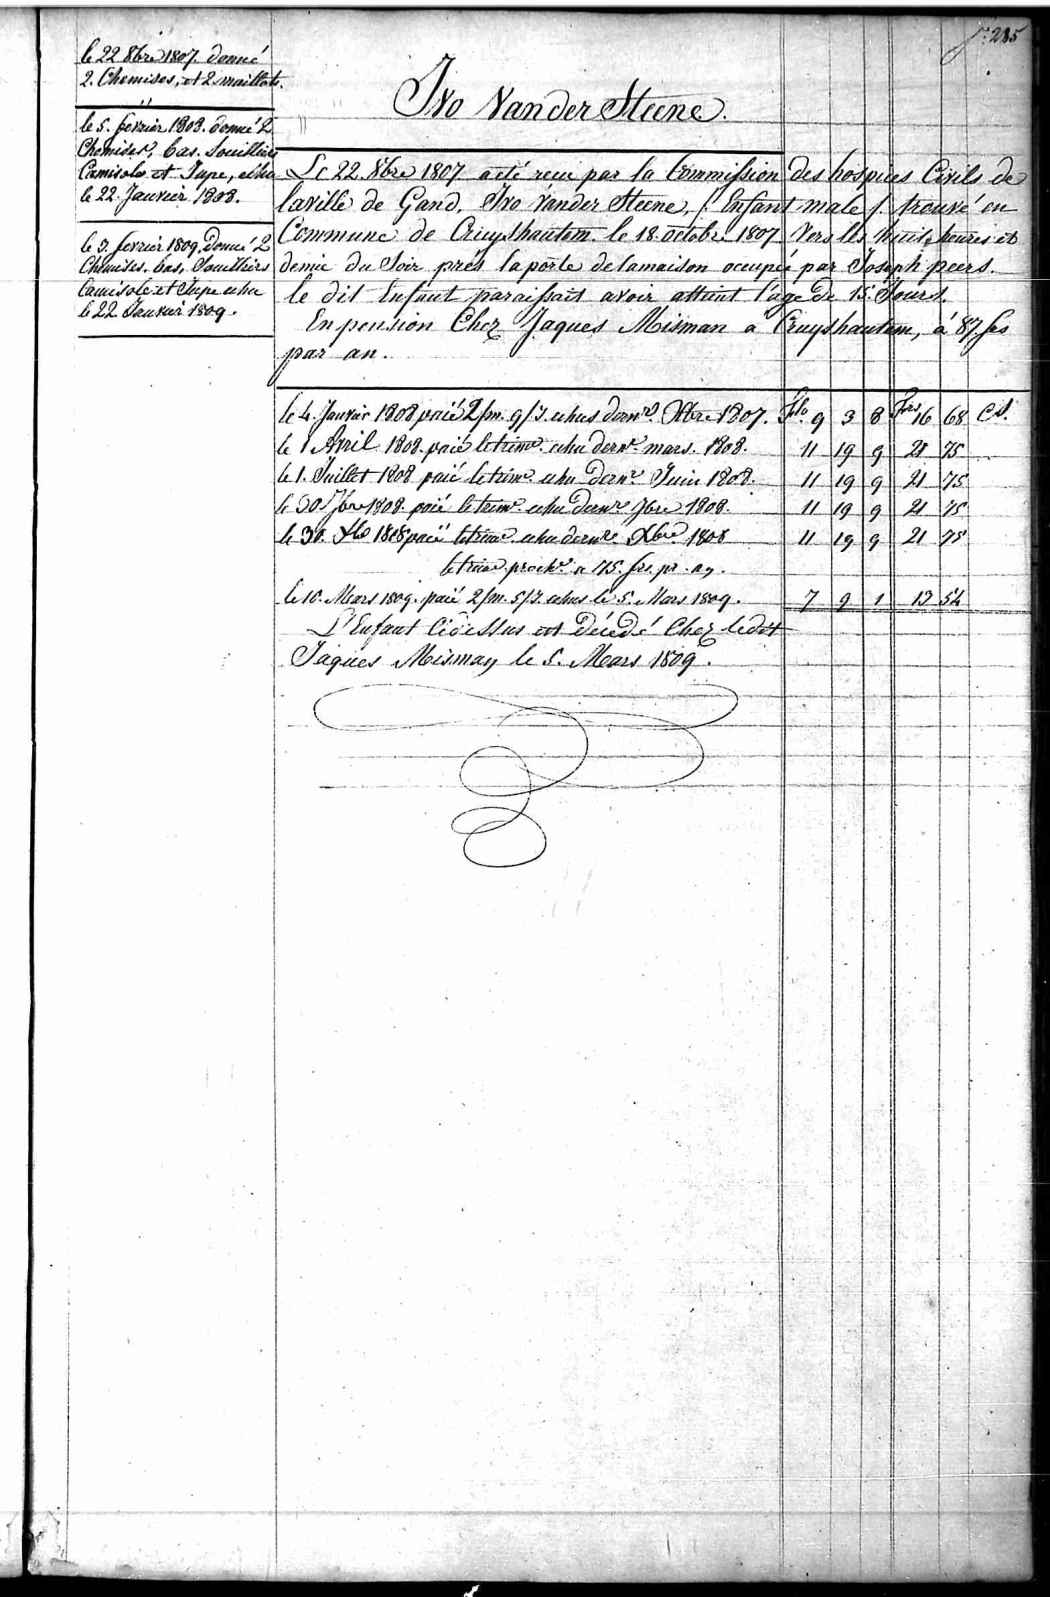 f.° 285
le 22 8bre 1807. donné
2. Chemises, et 2 maillots.
le 5. fevrier 1808. donné 2
Chemises, bas, Souilliers
Camisole et Jupe, echu
le 22. Janvier 1808.
le 3. fevrier 1809. Donné 2
Chemises. bas, Souilliers
Camisole et Jupe echu
le 22 Janvier 1809.
Ivo Vander Steene.
Le 22. 8bre 1807 a eté recu par la Commission des hospices Civils de
la ville de Gand, Ivo Vander Steene, /: Enfant male /: trouvé en
Commune de Cruyshautem. le 18. octobr. 1807 Vers les huit heures et
demie du Soir près la porte de la maison occupée par Joseph peers.
le dit Enfant paraissait avoir attaint l'age de 15. Jours.
En pension Chez Jaques Misman a Cruyshautem, á 87. frs
par an.
le 4. Janvier 1808 paié 2/m. 9/J. echus dernr. Xbre 1807. Flo. 9 3 8 frs 16 68 Cs.
le 1 Avril 1808. paié le trimr. echu dernr. mars. 1808. 11 19 9 21 75
le 1. Juillet 1808 paié le trimr. echu dernr. Juin 1808. 11 19 9 21 75
le 30 7bre 1808. paié le trimr. echu dernr. 7bre 1808. 11 19 9 21 75
le 30. Xbre 1808 paié le trimr. echu dernr. Xbre 1808 11 19 9 21 75
le trimr. prochn. a 75. frs. pr. an.
le 16. Mars 1809. paié 2/m. 5/J. echus le 5. Mars 1809. 7 9 1 13 54
L'Enfant Cidessus est Décedé Chez ledit
Jaques Misman le 5. Mars 1809.